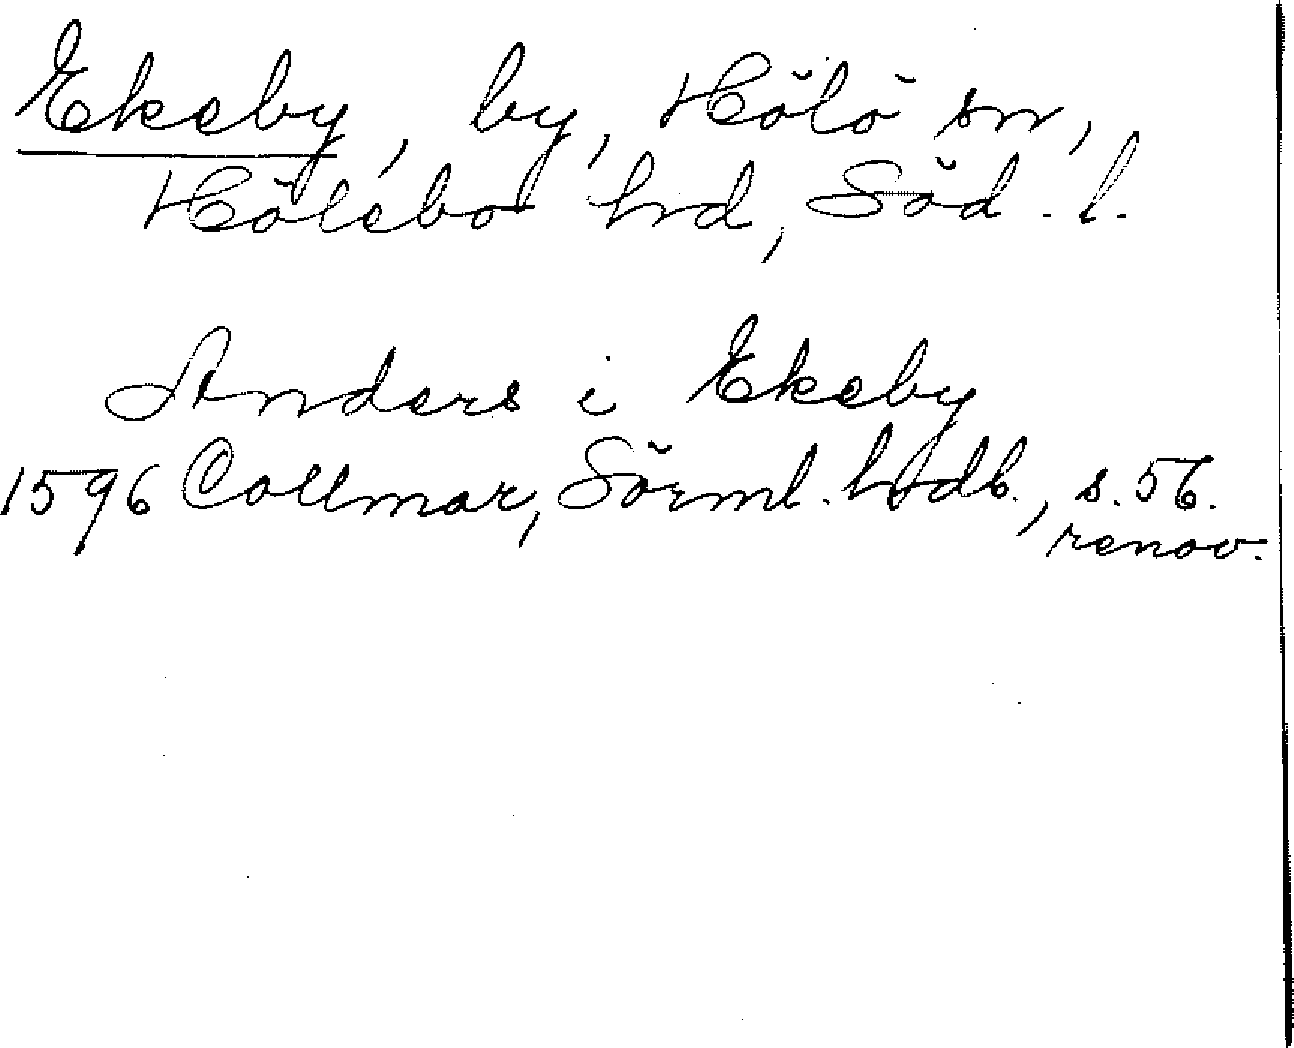 Ekeby, by, Hölö sn,
Hölebo hrd, Söd. l.
Anders i Ekeby
1596 Collmar, Sörml. hdb., s. 56.
renov.